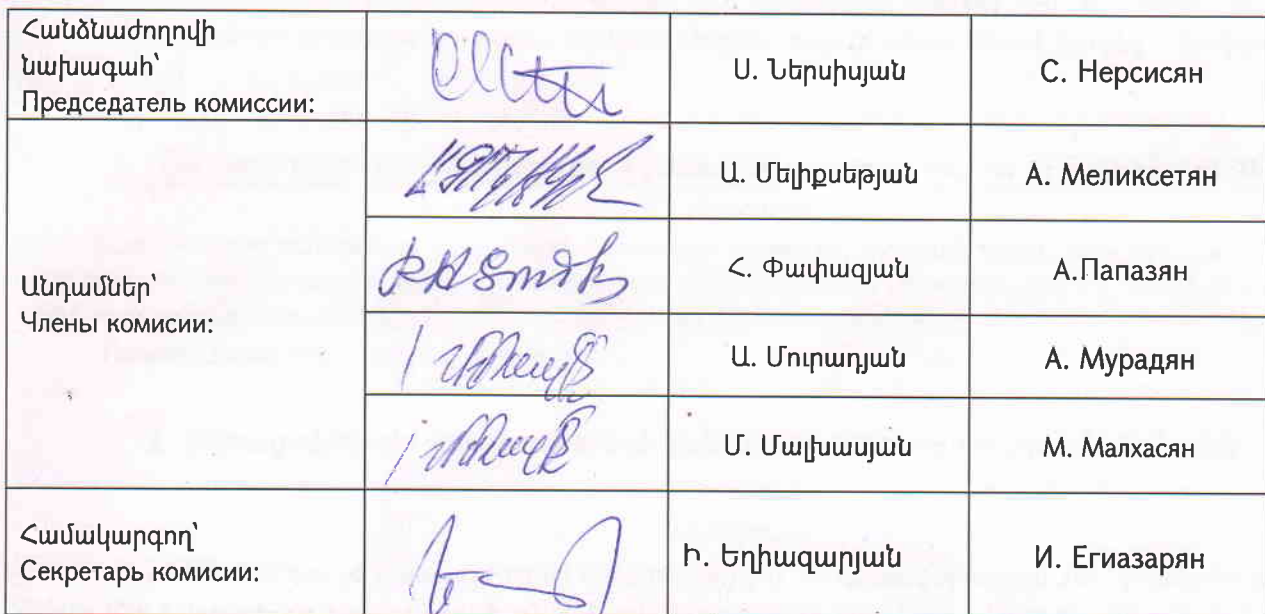 Հանձնաժողովի
նախագահ՝
Председатель комиссии:
Ս. Ներսիսյան
С. Нерсисян
Ա. Մելիքսեթյան
А. Меликсетян
Անդամներ՝
Члены комисии:
Հ. Փափազյան
А.Папазян
Ա. Մուրադյան
А. Мурадян
Մ. Մալխասյան
М. Малхасян
Համակարգող՝
Секретарь комисии:
Ի. Եղիազարյան
И. Егиазарян